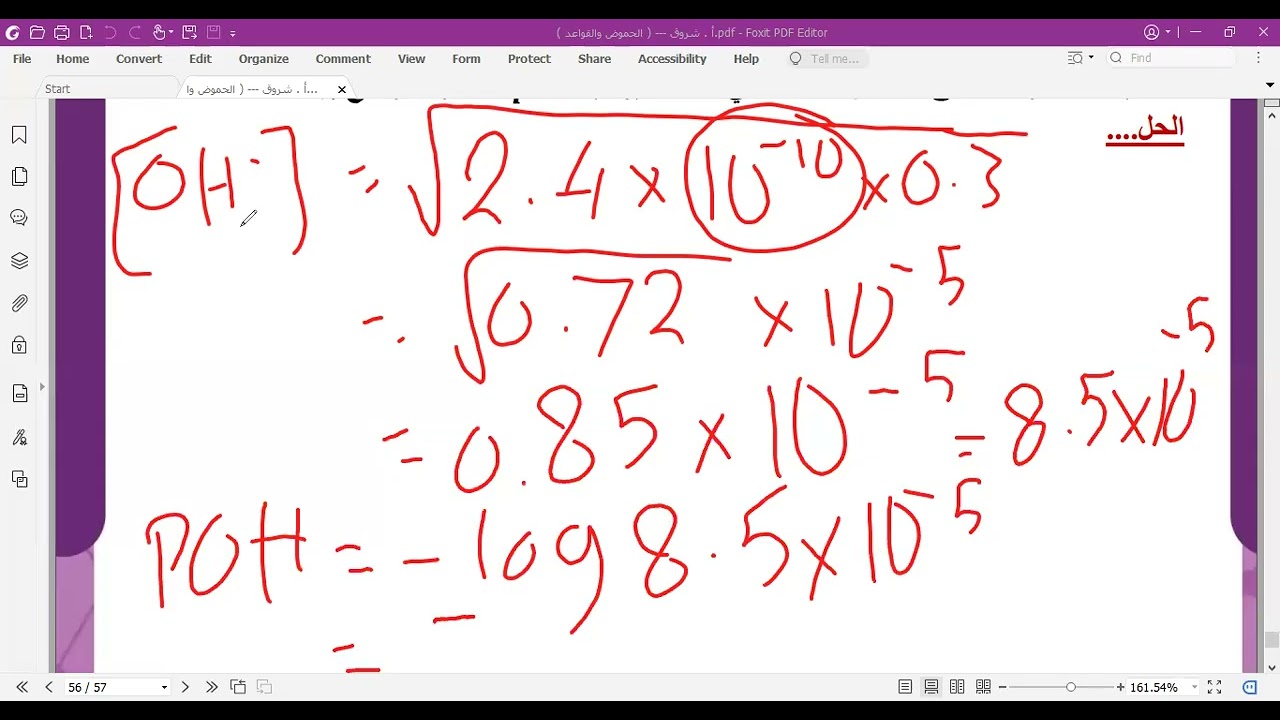 أ . شروق --- ( الحموض والقواعد ).pdf - Foxit PDF Editor
File Home Convert Edit Organize Comment View Form Protect Share Accessibility Help Tell me... Find
Start أ . شروق --- ( الحموض وا...
الحل....
[OH-] = √2.4 × 10^-10 × 0.3
= √0.72 × 10^-5
= 0.85 × 10^-5 = 8.5×10^-5
POH = -log 8.5×10^-5
= -
56 / 57 161.54%